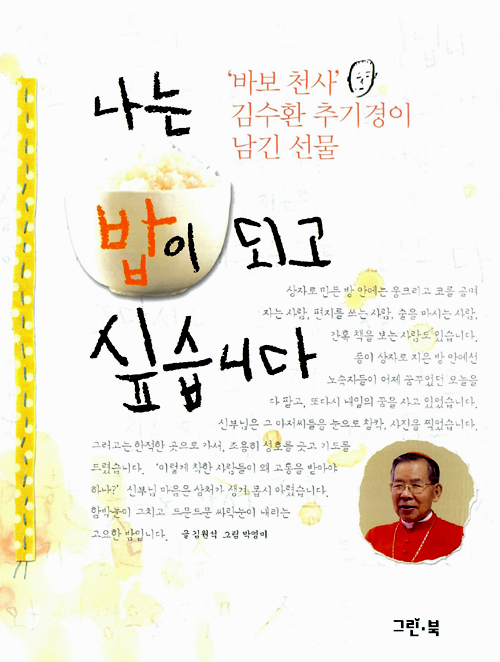 나는
'바보 천사'
김수환 추기경이
남긴 선물
밥이 되고
싶습니다
상자로 만든 방 안에는 웅크리고 코를 골며
자는 사람, 편지를 쓰는 사람, 술을 마시는 사람,
간혹 책을 보는 사람도 있습니다.
종이 상자로 지은 방 안에선
노숙자들이 어제 꿈꾸었던 오늘을
다 팔고, 또다시 내일의 꿈을 사고 있었습니다.
신부님은 그 아저씨들을 눈으로 찰칵, 사진을 찍었습니다.
그러고는 한적한 곳으로 가서, 조용히 성호를 긋고 기도를
드렸습니다. '이렇게 착한 사람들이 왜 고통을 받아야
하나?' 신부님 마음은 상처가 생겨 몹시 아렸습니다.
함박눈이 그치고 드문드문 싸락눈이 내리는
고요한 밤입니다. 글 김원석 그림 박영미
그린·북